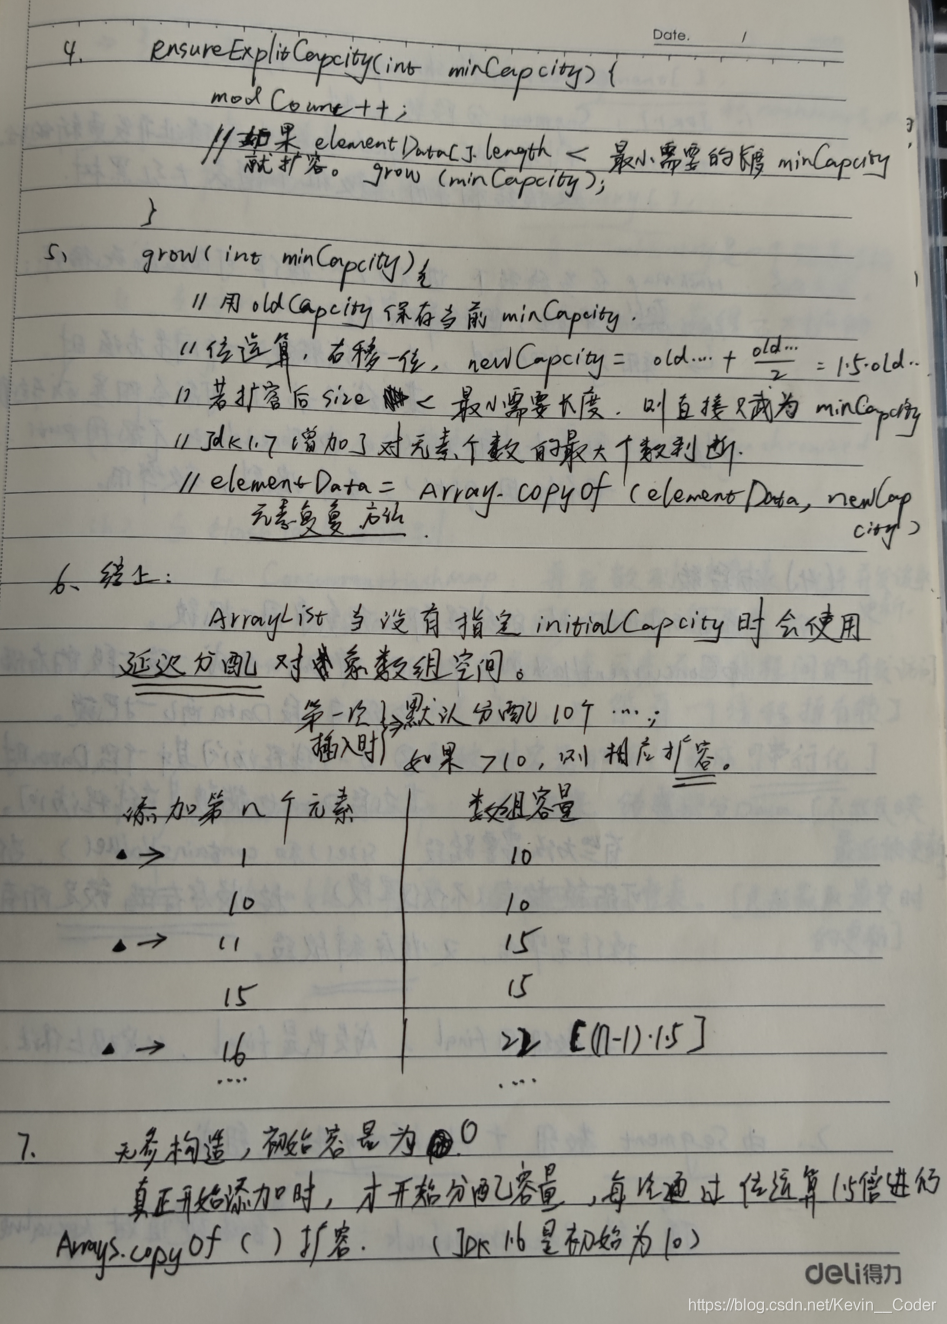 Date. /
4. ensureExplitCapcity(int minCapcity) {
modCount++;
//如果 elementData[].length < 最小需要的长度 minCapcity
就扩容。 grow (minCapcity);
}
5、 grow(int minCapcity){
// 用 oldCapcity 保存当前 minCapcity.
// 位运算，右移一位，newCapcity = old... + old.../2 = 1.5·old..
// 若扩容后 size < 最小需要长度，则直接 为 minCapcity
// Jdk1.7 增加了对元素个数的最大个数判断.
// elementData = Array.copyOf (elementData, newCap
city)
元素复 方法.
6、综上：
ArrayList 当没有指定 initialCapcity 时会使用
延迟分配 对象数组空间。
第一次 默认分配 10个 ...;
插入时 如果 >10，则相应扩容。
添加第 n 个元素 数组容量
▲→ 1 10
10 10
▲→ 11 15
15 15
▲→ 16 22 [(n-1)·1.5]
.... ....
7. 无参构造，初始容量为 0
真正开始添加时，才开始分配容量，每次通过 位运算1.5倍进行
Arrays.copyOf ( ) 扩容. (JDK 1.6 是初始为 10)
deli得力
https://blog.csdn.net/Kevin__Coder